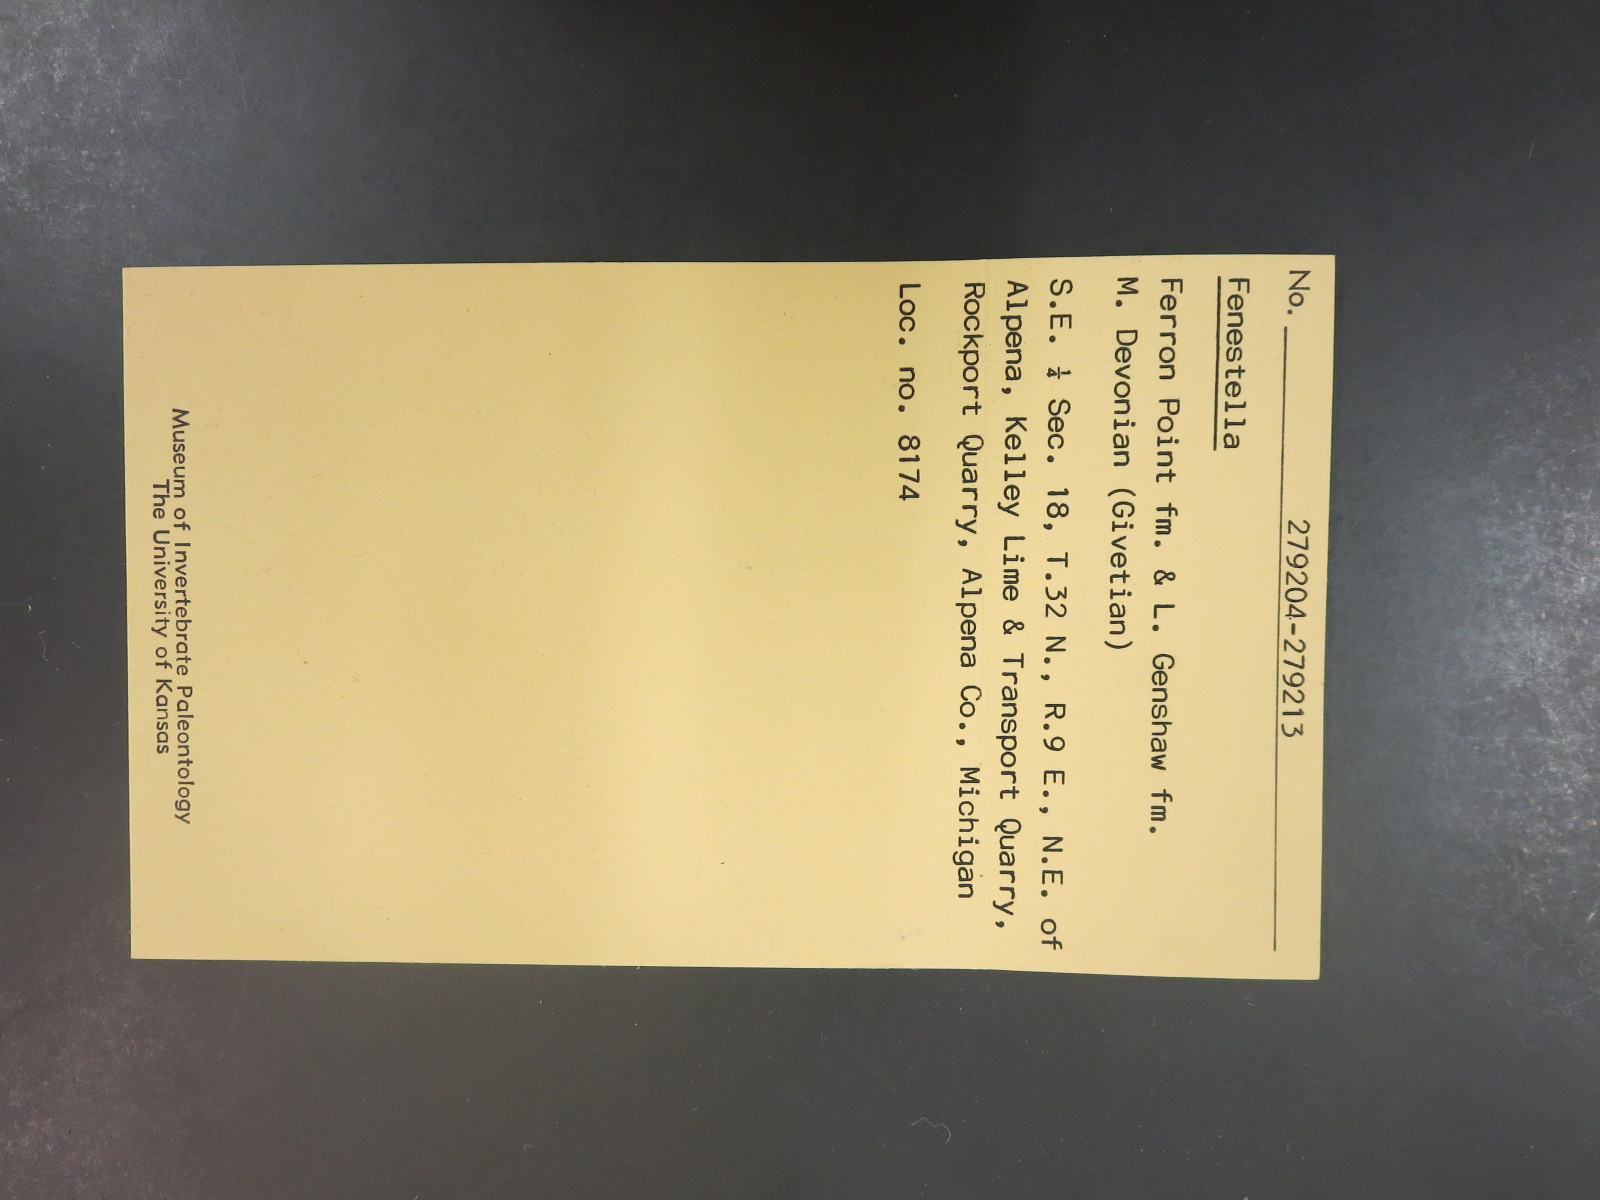 No. 279204-279213
Fenestella
Ferron Point fm. & L. Genshaw fm.
M. Devonian (Givetian)
S.E. ¼ Sec. 18, T.32 N., R.9 E., N.E. of
Alpena, Kelley Lime & Transport Quarry,
Rockport Quarry, Alpena Co., Michigan
Loc. no. 8174
Museum of Invertebrate Paleontology
The University of Kansas